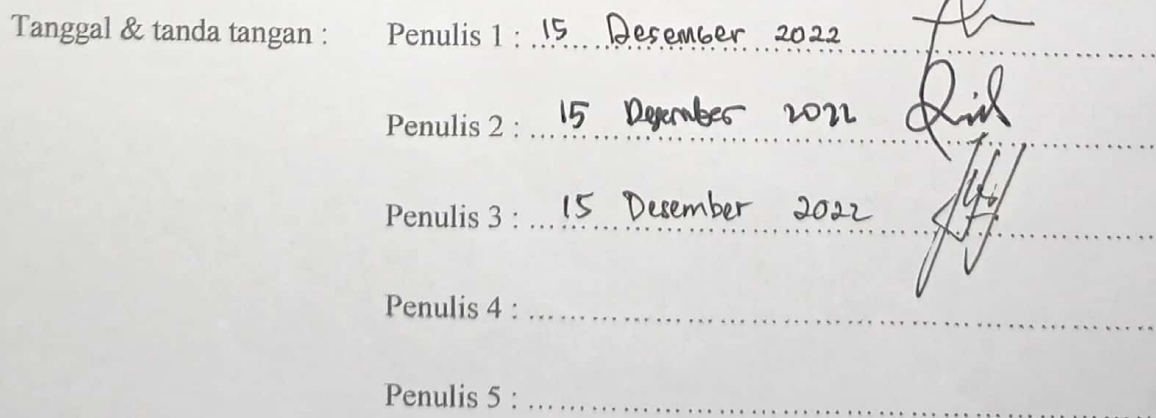 Tanggal & tanda tangan : Penulis 1 : 15 Desember 2022
Penulis 2 : 15 Desember 2022
Penulis 3 : 15 Desember 2022
Penulis 4 :
Penulis 5 :